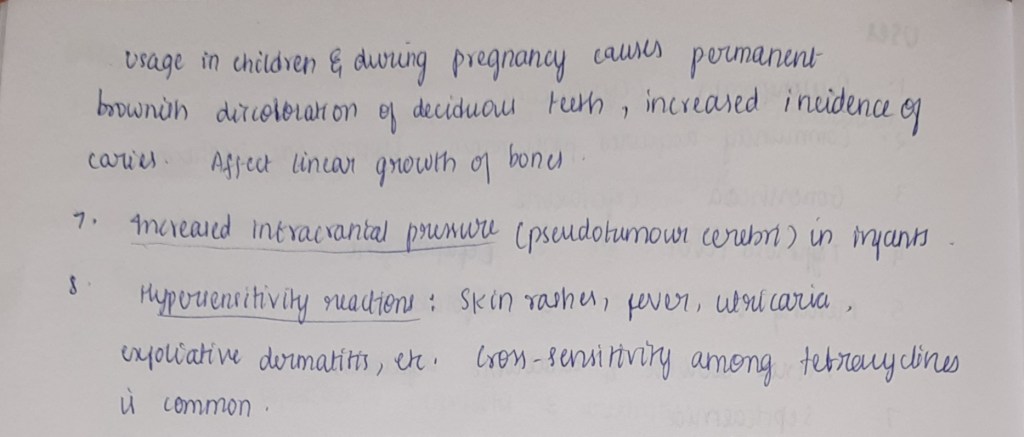 Usage in children & during pregnancy causes permanent
brownish discoloration of deciduous teeth, increased incidence of
caries. Affect linear growth of bones.
7. Increased intracranial pressure (pseudotumour cerebri) in infants.
8. Hypersensitivity reactions: Skin rashes, fever, urticaria,
exfoliative dermatitis, etc. Cross-sensitivity among tetracyclines
is common.